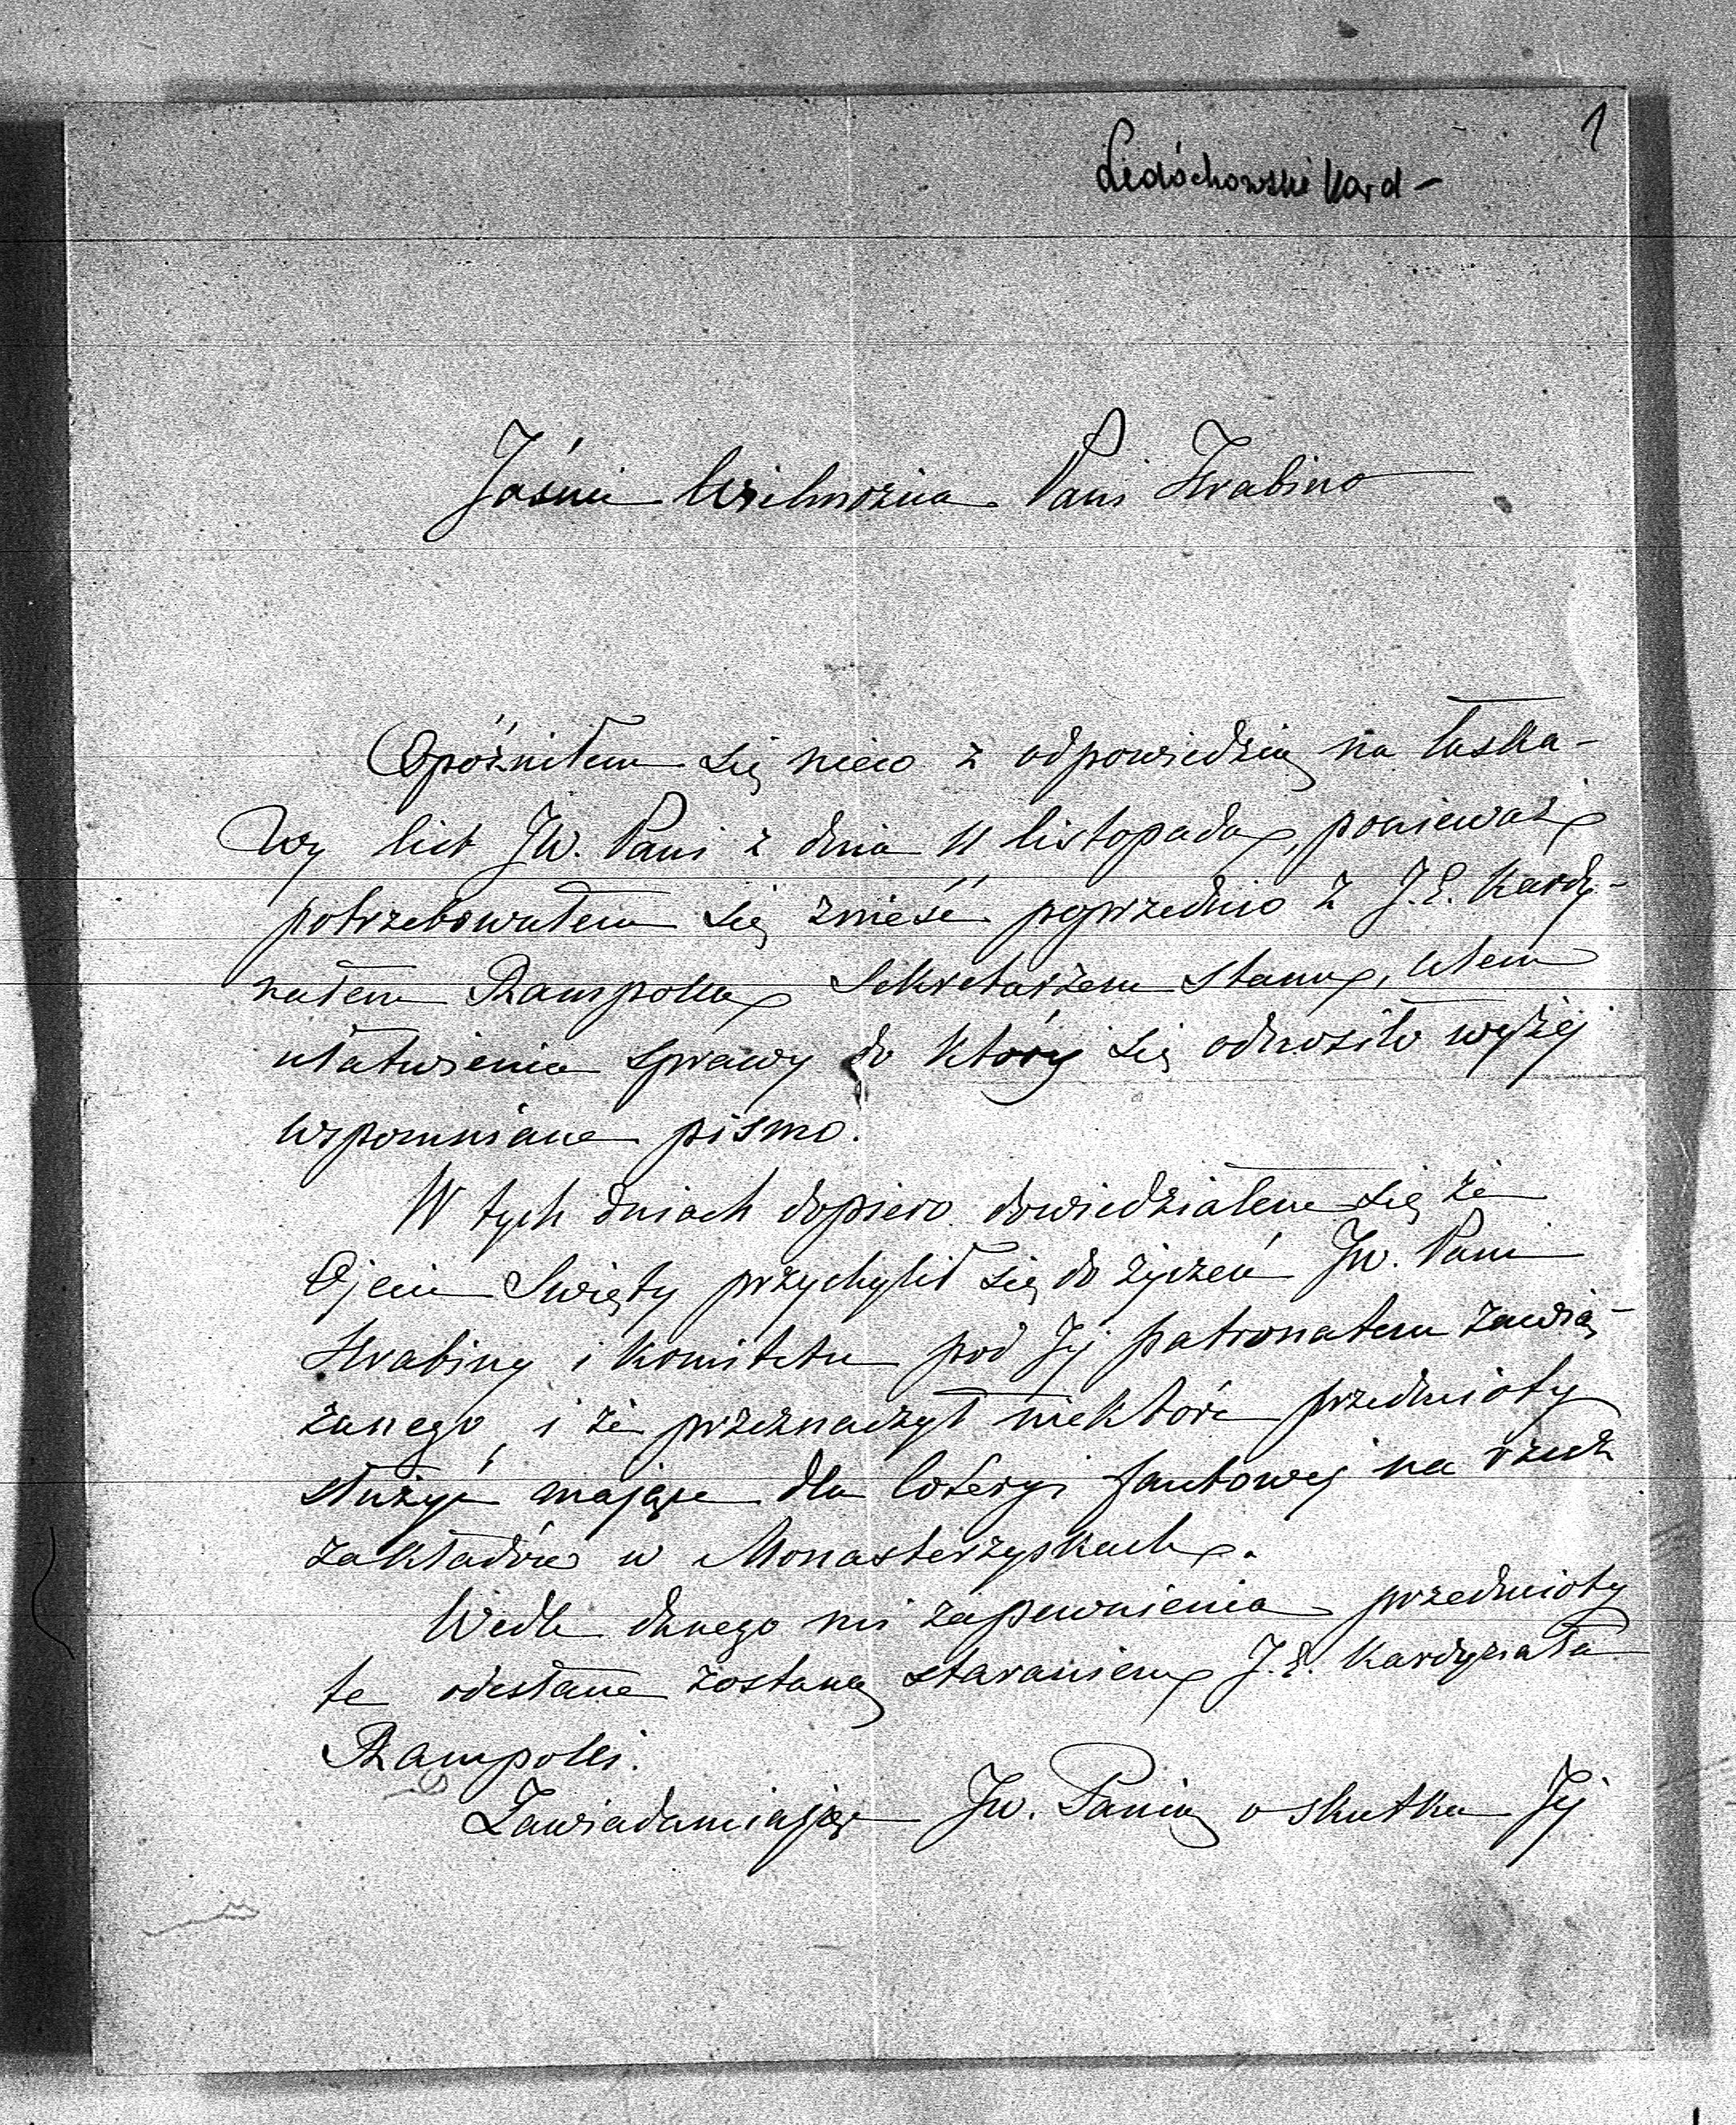 1
Ledóchowski Kard –
Jaśnie Wielmożna Pani Hrabino
Opóźniłem się nieco z odpowiedzią na łaska-
wy list JW. Pani z dnia 11 listopada, ponieważ
potrzebowałem się znieść poprzednio z J.E. Kardy-
nałem Rampollą Sekretarzem stanu, celem
ułatwienia sprawy do któréj się odnosiło wyżéj
wspomniane pismo.
W tych dniach dopiero dowiedziałem się że
Ojciec Swięty przychylił się do życzeń Jw. Pani
Hrabiny i Komitetu pod Jéj patronatem zawią-
zanego, i że przeznaczył niektóre przedmioty
służyć mające dla loteryi fantowej na rzecz
zakładów w Monasterzyskach.
Wedle danego mi zapewnienia przedmioty
te odesłane zostaną staraniem J.E. Kardynała
Rampolli.
Zawiadamiając Jw. Panią o skutku Jéj